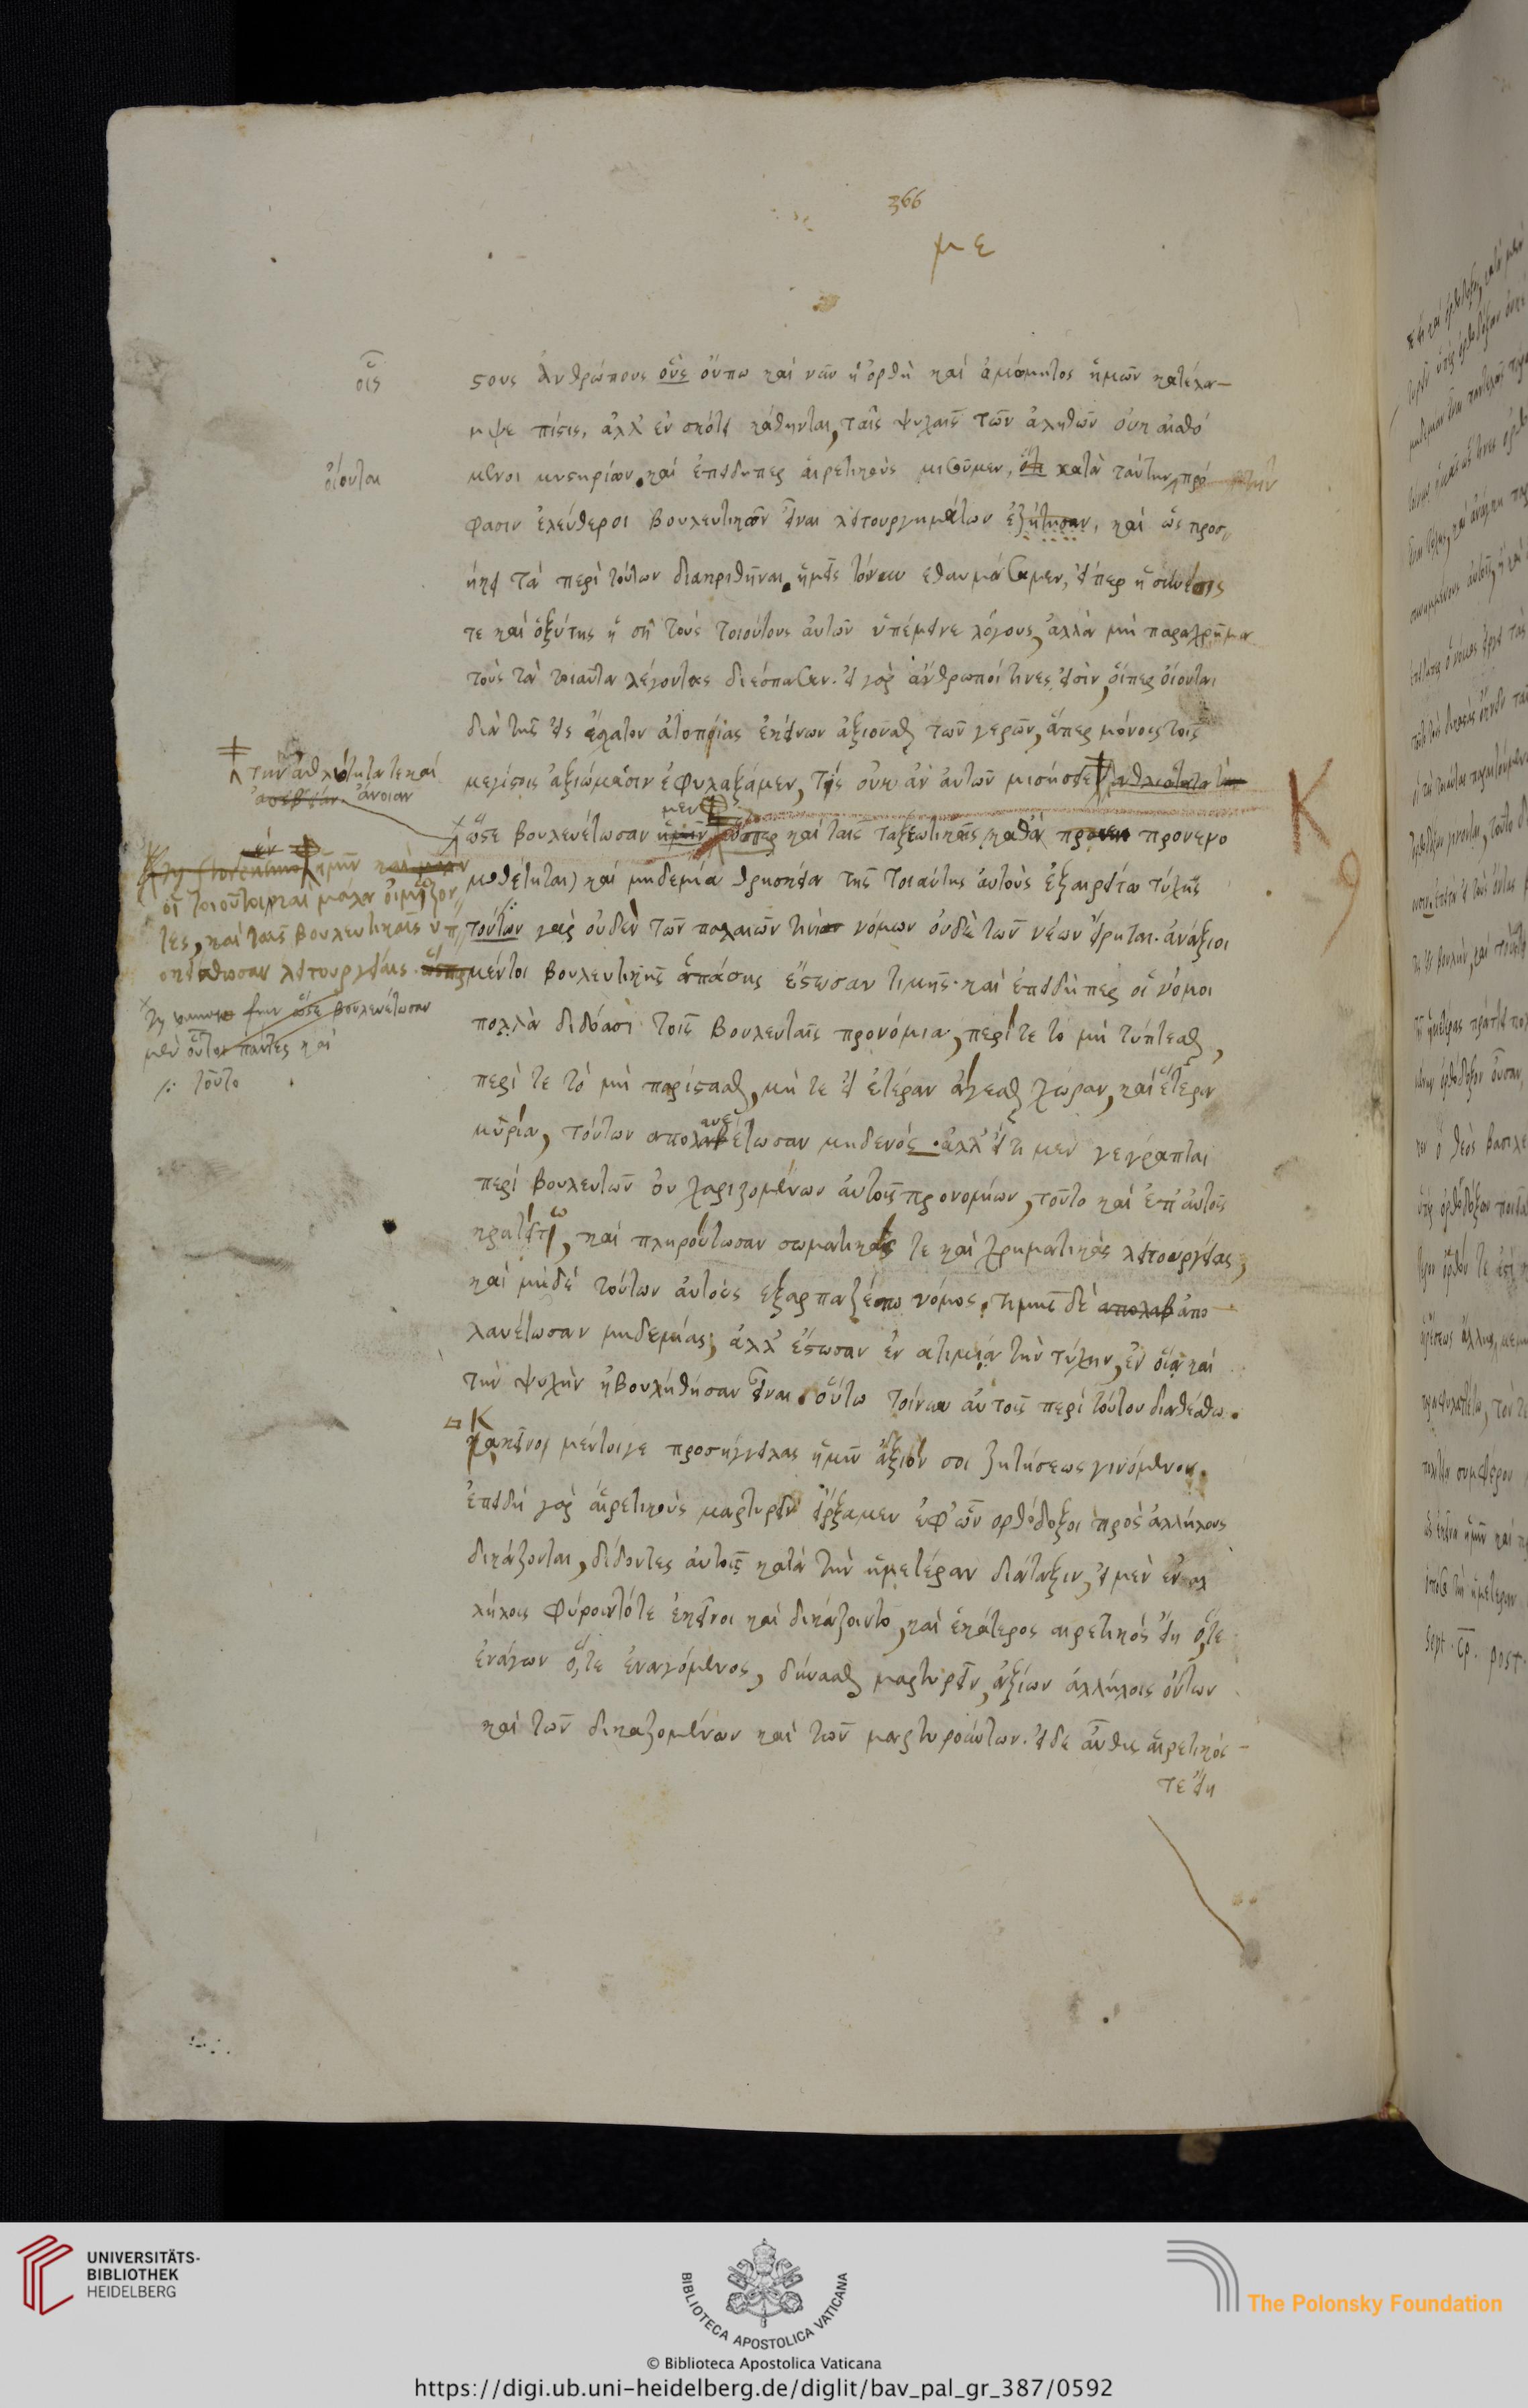 366
με
στους ἀνθρώπους οὓς οὔπω καὶ νῦν ἡ ὀρθὴ καὶ ἀμώμητος ἡμῶν κατέλα-
οἷς
μψε πίστις, ἀλλ' ἐν σκότει κάθηνται, ταῖς ψυχαῖς τῶν ἀληθῶν οὐκ αἰσθό
μενοι μυστηρίων. καὶ ἐπειδήπερ αἱρετικοὺς μισοῦμεν, κατὰ ταύτην πρό
οἴονται
φασιν ἐλεύθεροι βουλευτικῶν εἶναι λειτουργημάτων ἐζήτησαν, καὶ ὡς προσ
ήκει τὰ περὶ τούτων διακριθῆναι. ἡμεῖς τοίνυν ἐθαυμάσαμεν, εἴπερ ἡ σύνεσίς
τε καὶ ὀξύτης ἡ σὴ τοὺς τοιούτους αὐτῶν ὑπέμεινε λόγους, ἀλλὰ μὴ παραχρῆμα
τοὺς τὰ τοιαῦτα λέγοντας διέσπασεν. εἰ γὰρ ἄνθρωποί τινές εἰσιν, οἵπερ οἴονται
διὰ τῆς εἰς ἔσχατον ἀτοπίας ἐκείνων ἀξιοῦσθαι τῶν γερῶν, ἅπερ μόνοις τοῖς
μεγίστοις ἀξιώμασιν ἐφυλάξαμεν, τίς οὐκ ἂν αὐτῶν μισήσειε
τὴν ἀθλιότητά τε καὶ
ἄνοιαν
ὥστε βουλευέτωσαν ὥσπερ καὶ ταῖς ταξεωτικαῖς (καθὰ προνενο
μοθέτηται) καὶ μηδεμία θρησκεία τῆς τοιαύτης αὐτοὺς ἐξαιρείτω τύχης
οἱ τοιοῦτοι καὶ μάλα οἰμώζον
τες, καὶ ταῖς βουλευτικαῖς ὑπ
οκείσθωσαν λειτουργίαις.
τούτων γὰρ οὐδὲν τῶν παλαιῶν νόμων οὐδὲ τῶν νέων εἴρηται. ἀνάξιοι
μέντοι βουλευτικῆς ἁπάσης ἔστωσαν τιμῆς. καὶ ἐπειδήπερ οἱ νόμοι
βουλευέτωσαν
μὲν οὗτοι πάντες καὶ
τοῦτο
πολλὰ διδόασι τοῖς βουλευταῖς προνόμια, περί τε τὸ μὴ τύπτεσθαι,
περί τε τὸ μὴ παρίστασθαι, μή τε εἰς ἑτέραν ἄγεσθαι χώραν, καὶ ἕτερα
μυρία, τούτων ἀπολαυέτωσαν μηδενός. ἀλλ' εἴ τι μὲν γέγραπται
περὶ βουλευτῶν οὐ χαριζομένων αὐτοῖς προνομίων, τοῦτο καὶ ἐπ' αὐτοῖς
κρατείτω, καὶ πληρούτωσαν σωματικάς τε καὶ χρηματικὰς λειτουργίας,
καὶ μηδὲ τούτων αὐτοὺς ἐξαρπαζέτω νόμος. τιμῆς δὲ ἀπο
λαυέτωσαν μηδεμίας, ἀλλ' ἔστωσαν ἐν ἀτιμίᾳ τὴν τύχην, ἐν οἵᾳ καὶ
τὴν ψυχὴν ἠβουλήθησαν εἶναι. οὕτω τοίνυν αὐτοῖς περὶ τούτου διακείσθω.
Κ
κἀκεῖνο μέντοιγε προσήγγειλας ἡμῖν ἄξιόν σοι ζητήσεως γινόμενον.
ἐπειδὴ γὰρ αἱρετικοὺς μαρτυρεῖν εἴρξαμεν ἐφ' ὧν ὀρθόδοξοι πρὸς ἀλλήλους
δικάζονται, διδόντες αὐτοῖς κατὰ τὴν ἡμετέραν διάταξιν, εἰ μὲν ἐν ἀλ
λήλοις φύροιντό τε ἐκεῖνοι καὶ δικάζοιντο, καὶ ἑκάτερος αἱρετικὸς εἴη ὅ τε
ἐνάγων ὅ τε ἐναγόμενος, δύνασθαι μαρτυρεῖν, ἀξίων ἀλλήλοις ὄντων
καὶ τῶν δικαζομένων καὶ τῶν μαρτυρούντων. εἰ δὲ αὖθις αἱρετικός
τε εἴη
K
9
UNIVERSITÄTS-
BIBLIOTHEK
HEIDELBERG
BIBLIOTECA APOSTOLICA VATICANA
The Polonsky Foundation
© Biblioteca Apostolica Vaticana
https://digi.ub.uni-heidelberg.de/diglit/bav_pal_gr_387/0592